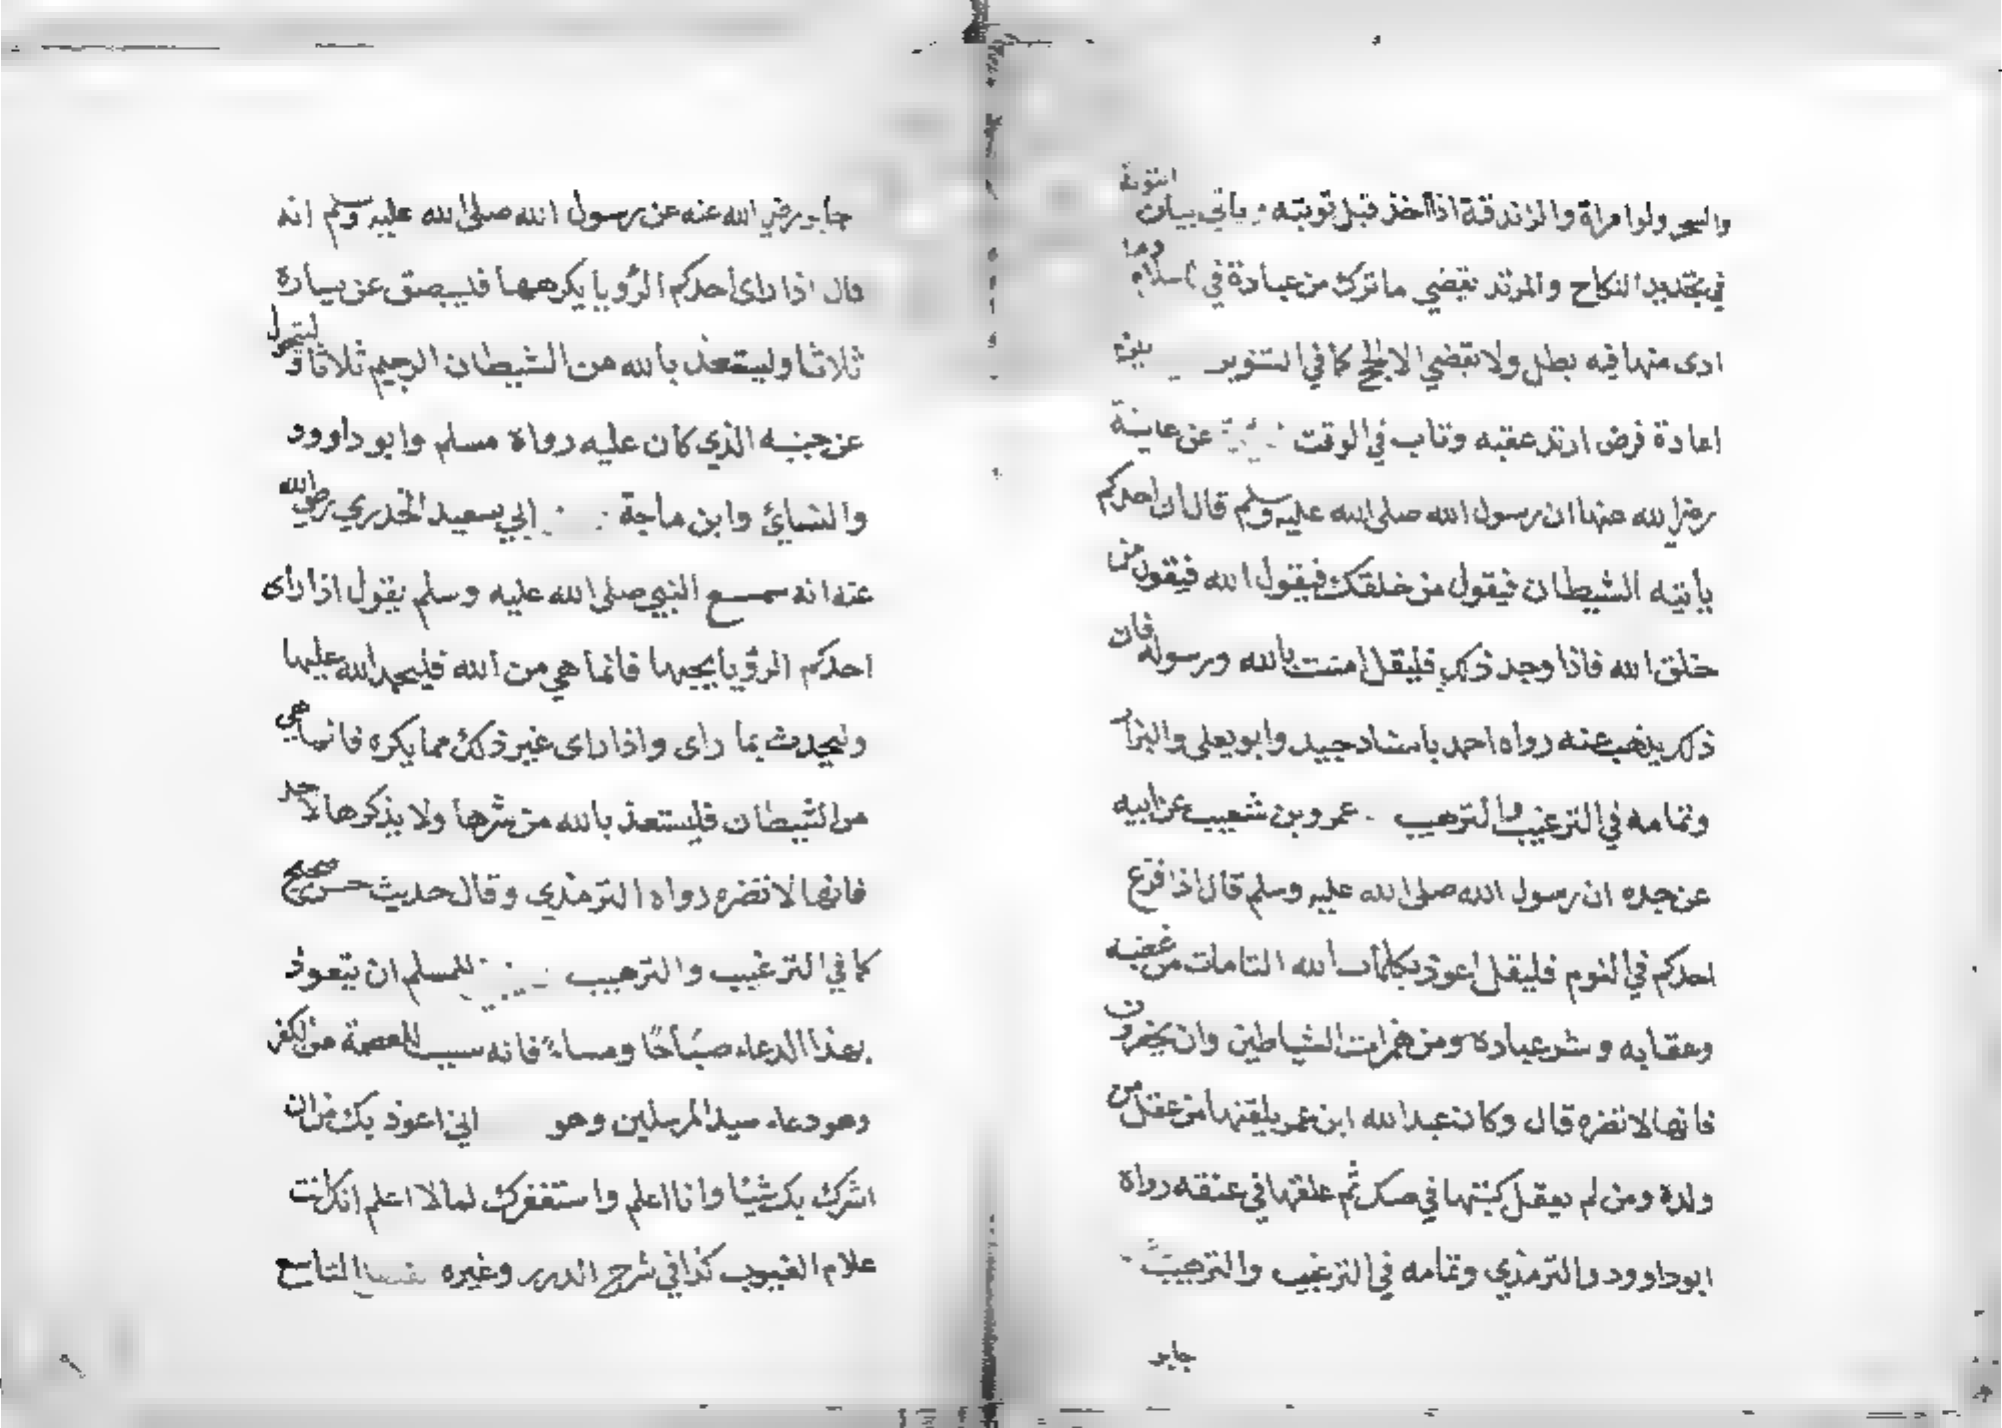 والسحر ولو امراة والزندقة اذا اخذ قبل توبته وياتي بيان التوبة
في تجديد النكاح والمرتد يقضي ما ترك من عبادة في اسلام وما
ادى منها فيه بطل ولا يقضي الا الحج كما في التنوير
اعادة فرض ارتد عقبه وتاب في الوقت عن عايشة
رضي الله عنها ان رسول الله صلى الله عليه وسلم قال ان احدكم
يأتيه الشيطان فيقول من خلقك فيقول الله فيقول من
خلق الله فاذا وجد ذلك فليقل امنت بالله ورسوله فان
ذلك يذهب عنه رواه احمد باسناد جييد وابو يعلى والبزار
وتمامه في الترغيب والترهيب عمرو بن شعيب عن ابيه
عن جده ان رسول الله صلى الله عليه وسلم قال اذا فزع
احدكم في النوم فليقل اعوذ بكلمات الله التامات من غضبه
وعقابه وشر عباده ومن همزات الشياطين وان يحضرون
فانها لا تضره قال وكان عبد الله ابن عمر يلقنها من عقل من
ولده ومن لم يعقل كتبها في صك ثم علقها في عنقه رواة
ابو داوود والترمذي وتمامه في الترغيب والترهيب
جابر
جابر رضي الله عنه عن رسول الله صلى الله عليه وسلم انه
قال اذا راى احدكم الرؤيا يكرهها فليبصق عن يساره
ثلاثا وليستعذ بالله من الشيطان الرجيم ثلاثا وليتحول
عن جنبه الذي كان عليه رواة مسلم وابو داوود
والنسائ وابن ماجة ابي سعيد الخدري رضي الله
عنه انه سمع النبي صلى الله عليه وسلم يقول اذا راى
احدكم الرؤيا يحبها فانما هي من الله فليحمد الله عليها
وليحدث بما راى واذا راى غير ذلك مما يكره فانما هي
من الشيطان فليستعذ بالله من شرها ولا يذكرها لاحد
فانها لا تضره رواه الترمذي وقال حديث حسن صحيح
كما في الترغيب والترهيب للمسلم ان يتعوذ
بهذا الدعاء صباحا ومساء فانه سبب للعصمة من الكفر
وهو دعاء سيد المرسلين وهو اني اعوذ بك من ان
اشرك بك شيئا وانا اعلم واستغفرك لما لا اعلم انك انت
علام الغيوب كذا في شرح الدرر وغيره التاسع